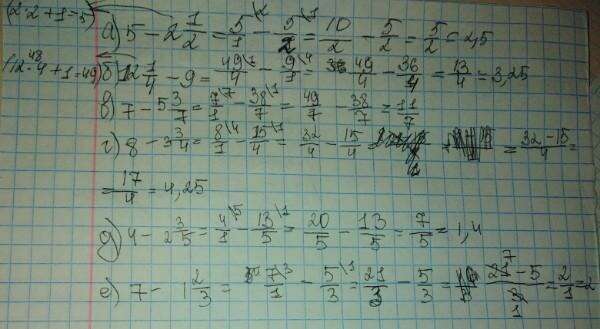 (2·2+1=5) а) 5 - 2 1/2 = 5/1 \2 - 5/2 \1 = 10/2 - 5/2 = 5/2 = 2,5
(12·4+1=49) 48 б) 12 1/4 - 9 = 49/4 \1 - 9/1 \4 = 49/4 - 36/4 = 13/4 = 3,25
в) 7 - 5 3/7 = 7/1 \7 - 38/7 \1 = 49/7 - 38/7 = 11/7
г) 8 - 3 3/4 = 8/1 \4 - 15/4 \1 = 32/4 - 15/4 = = (32-15)/4 =
= 17/4 = 4,25
д) 4 - 2 3/5 = 4/1 \5 - 13/5 \1 = 20/5 - 13/5 = 7/5 = 1,4
е) 7 - 1 2/3 = 7/1 \3 - 5/3 \1 = 21/3 - 5/3 = (21 7 - 5)/(3 1) = 2/1 = 2